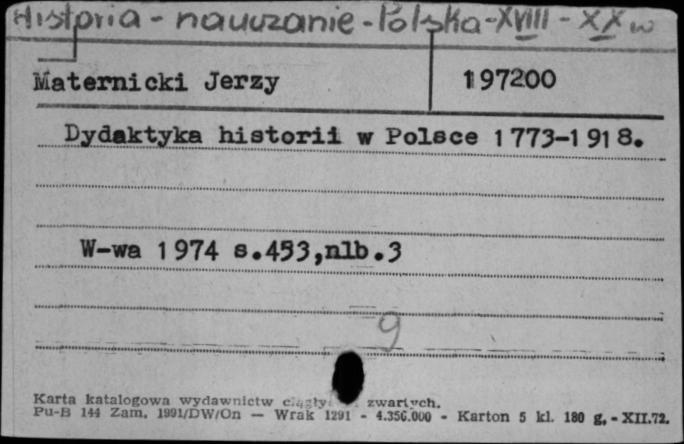 Historia - nauczanie - Polska - XVIII - XX w
Maternicki Jerzy 197200
Dydaktyka historii w Polsce 1773-1918.
W-wa 1974 s.453,nlb.3
9
Karta katalogowa wydawnictw zwartych.
Pu-B 144 Zam. 1991/DW/On — Wrak 1291 - 4.356.000 - Karton 5 kl. 180 g. - XII.72.